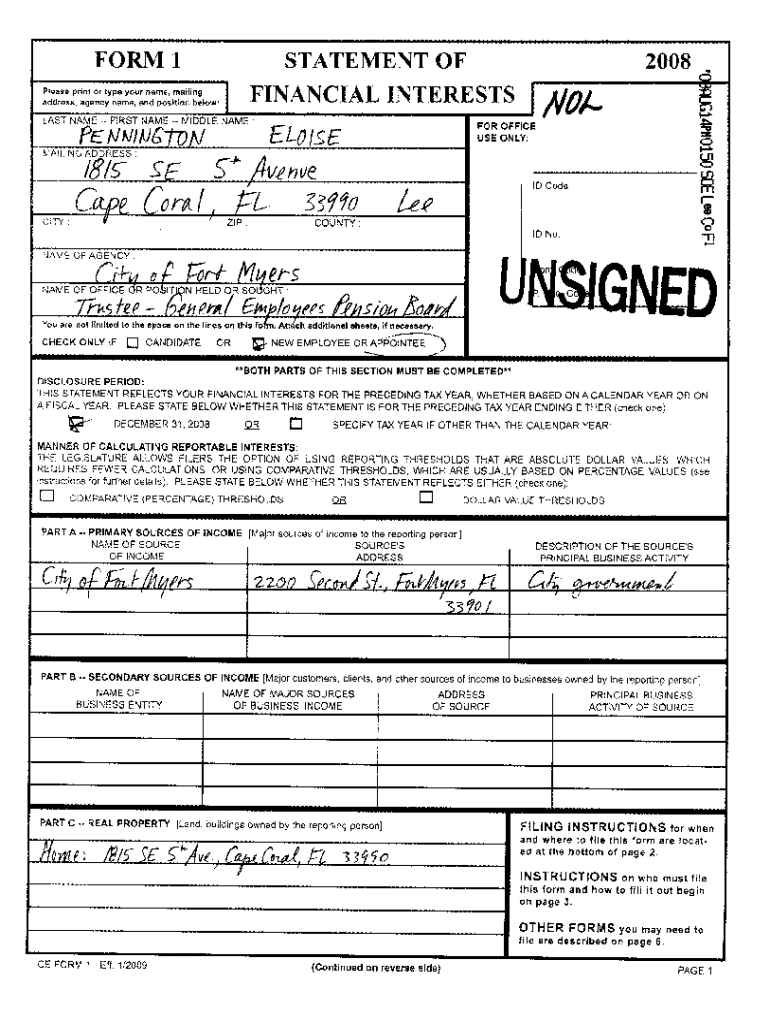 FORM 1 STATEMENT OF 2008
Please print or type your name, mailing
address, agency name, and position below:
FINANCIAL INTERESTS
NOL
'09AUG14PM0150 SOE Lee Co Fl
LAST NAME -- FIRST NAME -- MIDDLE NAME :
PENNINGTON ELOISE
FOR OFFICE
USE ONLY:
MAILING ADDRESS :
1815 SE 5th Avenue
Cape Coral, FL 33990 Lee
ID Code
CITY : ZIP : COUNTY :
ID No.
NAME OF AGENCY :
City of Fort Myers
UNSIGNED
NAME OF OFFICE OR POSITION HELD OR SOUGHT :
Trustee - General Employees Pension Board
You are not limited to the space on the lines on this form. Attach additional sheets, if necessary.
CHECK ONLY IF CANDIDATE OR NEW EMPLOYEE OR APPOINTEE
**BOTH PARTS OF THIS SECTION MUST BE COMPLETED**
DISCLOSURE PERIOD:
THIS STATEMENT REFLECTS YOUR FINANCIAL INTERESTS FOR THE PRECEDING TAX YEAR, WHETHER BASED ON A CALENDAR YEAR OR ON
A FISCAL YEAR. PLEASE STATE BELOW WHETHER THIS STATEMENT IS FOR THE PRECEDING TAX YEAR ENDING EITHER (check one):
DECEMBER 31, 2008 OR SPECIFY TAX YEAR IF OTHER THAN THE CALENDAR YEAR:
MANNER OF CALCULATING REPORTABLE INTERESTS:
THE LEGISLATURE ALLOWS FILERS THE OPTION OF USING REPORTING THRESHOLDS THAT ARE ABSOLUTE DOLLAR VALUES, WHICH
REQUIRES FEWER CALCULATIONS, OR USING COMPARATIVE THRESHOLDS, WHICH ARE USUALLY BASED ON PERCENTAGE VALUES (see
instructions for further details). PLEASE STATE BELOW WHETHER THIS STATEMENT REFLECTS EITHER (check one):
COMPARATIVE (PERCENTAGE) THRESHOLDS OR DOLLAR VALUE THRESHOLDS
PART A -- PRIMARY SOURCES OF INCOME [Major sources of income to the reporting person]
NAME OF SOURCE SOURCE'S DESCRIPTION OF THE SOURCE'S
OF INCOME ADDRESS PRINCIPAL BUSINESS ACTIVITY
City of Fort Myers 2200 Second St., Fort Myers, FL City government
33901
PART B -- SECONDARY SOURCES OF INCOME [Major customers, clients, and other sources of income to businesses owned by the reporting person]
NAME OF NAME OF MAJOR SOURCES ADDRESS PRINCIPAL BUSINESS
BUSINESS ENTITY OF BUSINESS' INCOME OF SOURCE ACTIVITY OF SOURCE
PART C -- REAL PROPERTY [Land, buildings owned by the reporting person]
Home: 1815 SE 5th Ave., Cape Coral, FL 33990
FILING INSTRUCTIONS for when
and where to file this form are locat-
ed at the bottom of page 2.
INSTRUCTIONS on who must file
this form and how to fill it out begin
on page 3.
OTHER FORMS you may need to
file are described on page 6.
CE FORM 1 Eff. 1/2009 (Continued on reverse side) PAGE 1